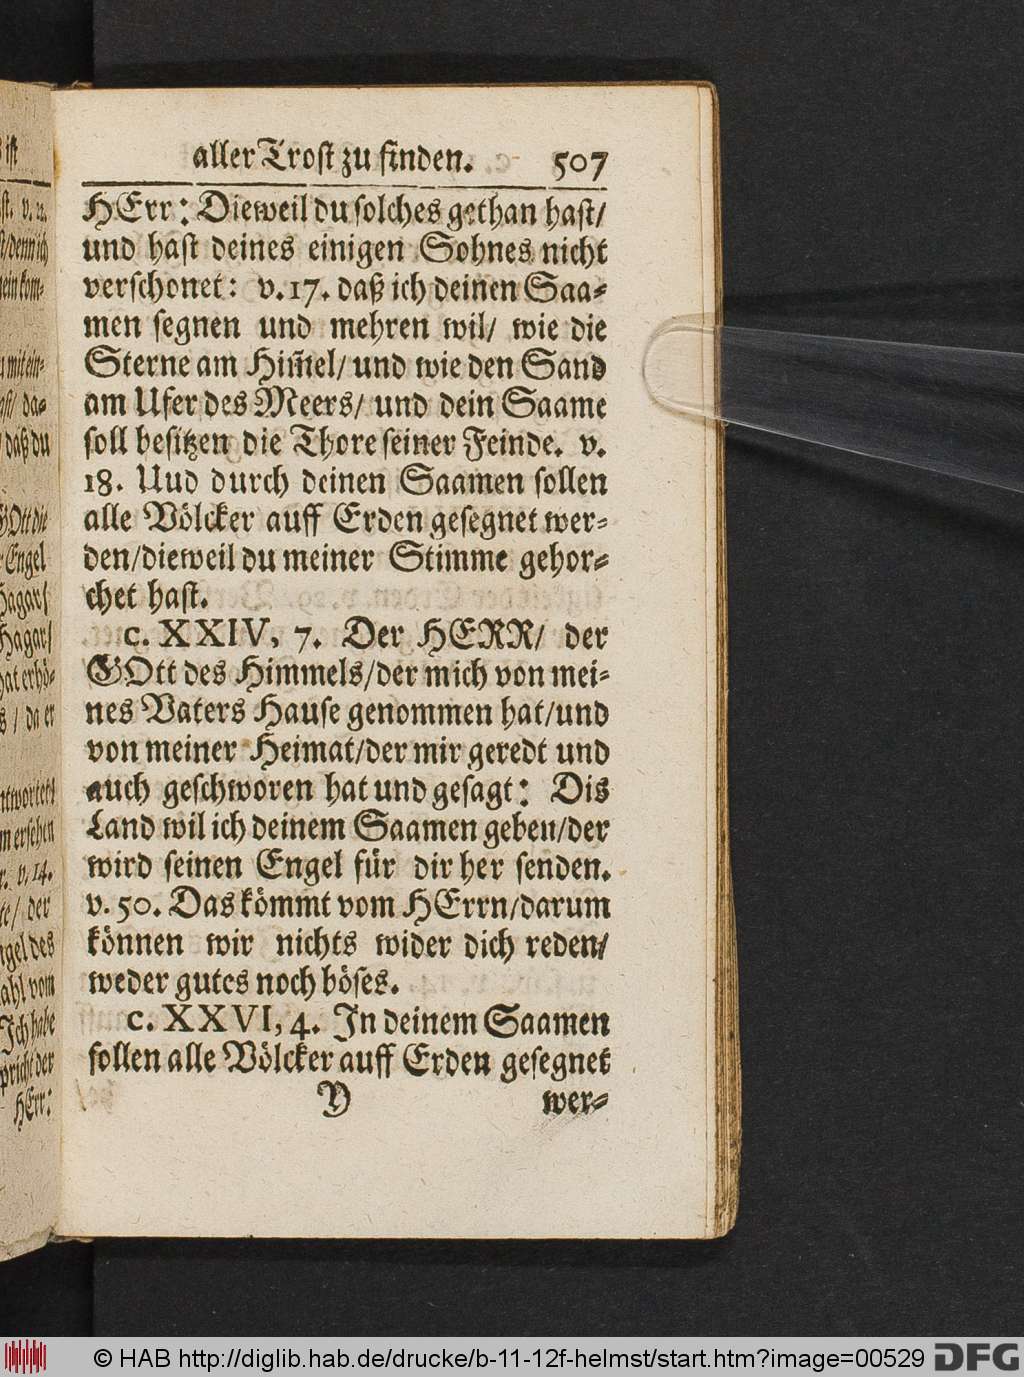 aller Trost zu finden. 507
HErr: Dieweil du solches gethan hast/
und hast deines einigen Sohnes nicht
verschonet: v. 17. daß ich deinen Saa-
men segnen und mehren wil/ wie die
Sterne am Him̃el/ und wie den Sand
am Ufer des Meers/ und dein Saame
soll besitzen die Thore seiner Feinde. v.
18. Uud durch deinen Saamen sollen
alle Völcker auff Erden gesegnet wer-
den/dieweil du meiner Stimme gehor-
chet hast.
c. XXIV, 7. Der HERR/ der
GOtt des Himmels/der mich von mei-
nes Vaters Hause genommen hat/und
von meiner Heimat/der mir geredt und
auch geschworen hat und gesagt: Dis
Land wil ich deinem Saamen geben/der
wird seinen Engel für dir her senden.
v. 50. Das kömmt vom HErrn/darum
können wir nichts wider dich reden/
weder gutes noch böses.
c. XXVI, 4. In deinem Saamen
sollen alle Völcker auff Erden gesegnet
Y wer-
ist
v. 12.
/denn ich
mit ein-
/ da-
daß du
GOtt die
Engel
Hagar/
Hagar/
hat erhö-
/ da er
v. 14.
/ der
des
vom
Ich habe
spricht der
HErr:
© HAB http://diglib.hab.de/drucke/b-11-12f-helmst/start.htm?image=00529 DFG